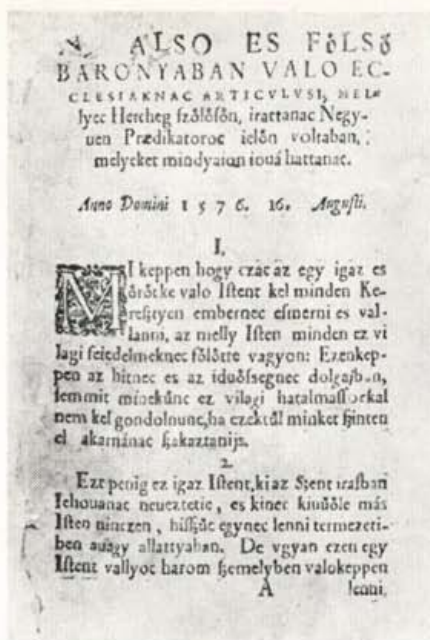 Az ALSO ES FőLSő
BARONYABAN VALO EC-
CLESIAKNAC ARTICVLVSI, MEL-
lyec Hercheg szőlősőn, irattanac Negy-
uen Prædikatoroc ielőn voltaban,
melyeket mindyaian iouá hattanac.
Anno Domini 1576. 16. Augusti.
I.
MI keppen hogy czác az egy igaz es
őrőcke valo Istent kel minden Ke-
resztyen embernec esmerni es val-
lanni, az melly Isten minden ez vi
lagi feiedelmeknec főlőtte vagyon: Ezenkep-
pen az hitnec es az iduősegnec dolgaiban,
semmit minekűnc ez vilagi hatalmassockal
nem kel gondolnunc, ha ezektűl minket szinten
el akarnánac szakaztanijs.
2.
Ezt penig ez igaz Istent, ki az Szent irasban
Iehouanac neueztetic, es kinec kiuűőle más
Isten ninczen, hisszűc egynec lenni termezeti-
ben auagy allattyaban. De vgyan ezen egy
Istent vallyoc harom szemelyben valokeppen
A lenni.